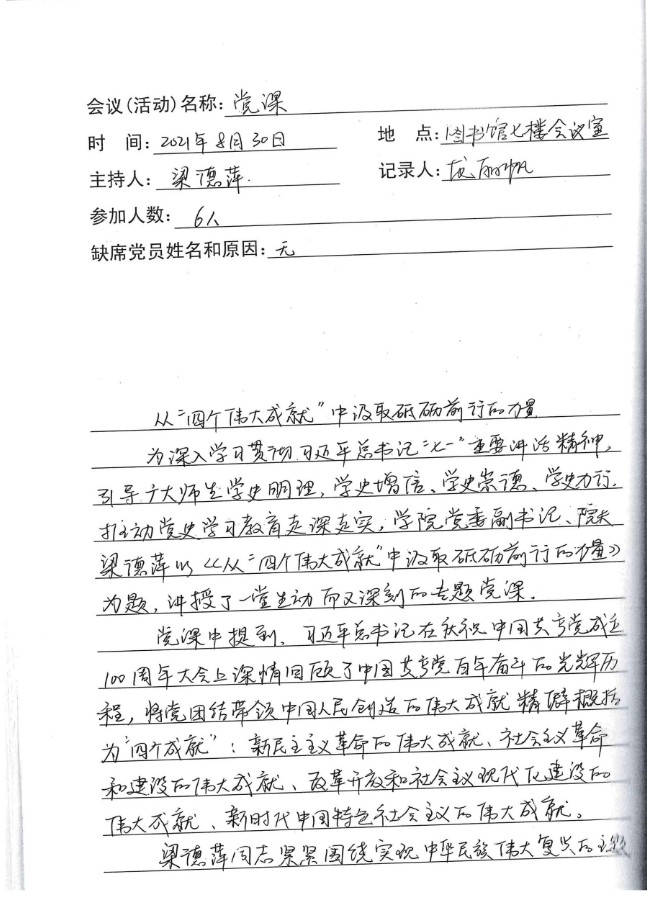 会议(活动)名称: 党课
时 间: 2021年8月30日 地 点: 图书馆七楼会议室
主持人: 梁德萍. 记录人: 丽帆
参加人数: 6人
缺席党员姓名和原因: 无
从“四个伟大成就”中汲取砥砺前行的力量
为深入学习贯彻习近平总书记“七一”重要讲话精神,
引导广大师生学史明理、学史增信、学史崇德、学史力行,
推动党史学习教育走深走实,学院党委副书记、院长
梁德萍以《从“四个伟大成就”中汲取砥砺前行的力量》
为题,讲授了一堂生动而又深刻的专题党课.
党课中提到,习近平总书记在庆祝中国共产党成立
100周年大会上深情回顾了中国共产党百年奋斗的光辉历
程,将党团结带领中国人民创造的伟大成就精辟概括
为“四个成就”:新民主主义革命的伟大成就、社会主义革命
和建设的伟大成就、改革开放和社会主义现代化建设的
伟大成就、新时代中国特色社会主义的伟大成就。
梁德萍同志紧紧围绕实现中华民族伟大复兴的主